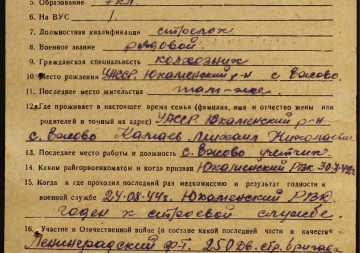 5. Образование 7 кл.
6. На ВУС /
7. Должностная квалификация стрелок
8. Военное звание рядовой.
9. Гражданская специальность колхозник
10. Место рождения УАССР. Юкаменский р-н с. Ежово.
11. Последнее место жительства там-же.
12. Где проживает в настоящее время семья (фамилия, имя и отчество жены или
родителей и точный их адрес) УАССР Юкаменский р-н
с. Ежово Михаил Николаевич
13. Последнее место работы и должность с. Ежово
14. Каким райгорвоенкоматом и когда призван Юкаменский РВК
15. Когда и где проходил последний раз медкомиссию и результат годности к
военной службе 24.08.44г. Юкаменский РВК
годен к строевой службе.
16. Участие в Отечественной войне (в составе какой последней части в качестве
Ленинградский ф-т. 250 стр. бригада